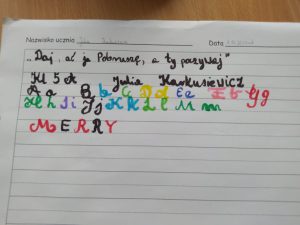 Nazwisko ucznia Data
„Daj, ać ja pobruszę, a ty poczywaj”
Kl 5A Julia Karkusiewicz
A a B b C c D d E e F f G g
H h I i J j K k L l M m
MERRY